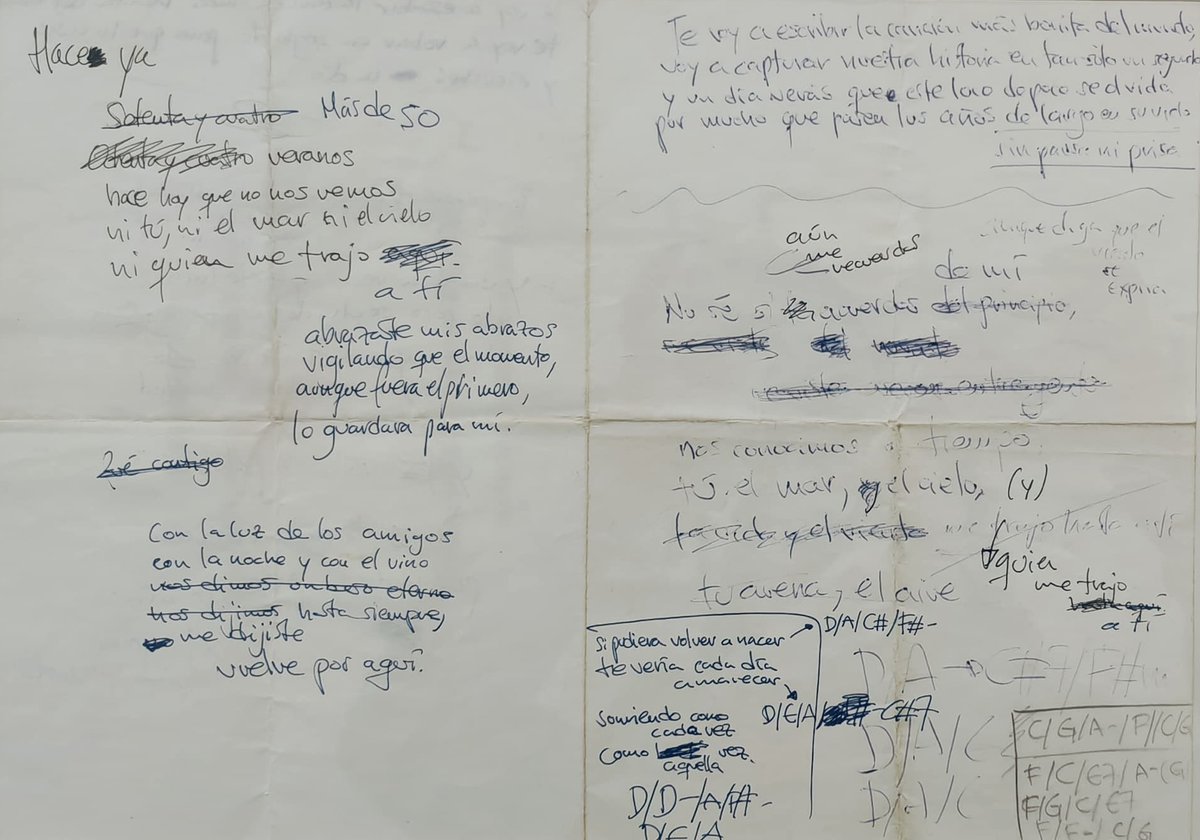 Hace ya
Setenta y cuatro Más de 50
Ochenta y cuatro veranos
hace hoy que no nos vemos
ni tú, ni el mar ni el cielo
ni quien me trajo
a tí
abrazaste mis abrazos
vigilando que el momento,
aunque fuera el primero,
lo guardara para mí.
contigo
Con la luz de los amigos
con la noche y con el vino
nos dimos un beso eterno
nos dijimos hasta siempre,
me dijiste
vuelve por aquí.
Te voy a escribir la canción más bonita del mundo,
voy a capturar nuestra historia en tan sólo un segundo
y un día verás que este loco de poco se olvida
por mucho que pasen los años de largo en su vida
sin pausa ni prisa
aunque diga que el
expira
aún
me
recuerdas
de mí
No sé si acuerdas del principio,
nos conocimos a tiempo.
tú, el mar, y el cielo, (y)
me trajo hasta
quien
me trajo
a tí
tu arena, el aire
si pudiera volver a nacer
te vería cada día
amanecer
sonriendo como
cada vez
como vez.
aquella
D/D-/A/F#-
D/E/A
D/A/C#/F#-
D A C#7/F#-
D/E/A/ C#7
D/A/C
D/A/C
C/G/A-/F//C/G
F/C/E7/A-(G
F/G/C/E7
F/F-/C/G